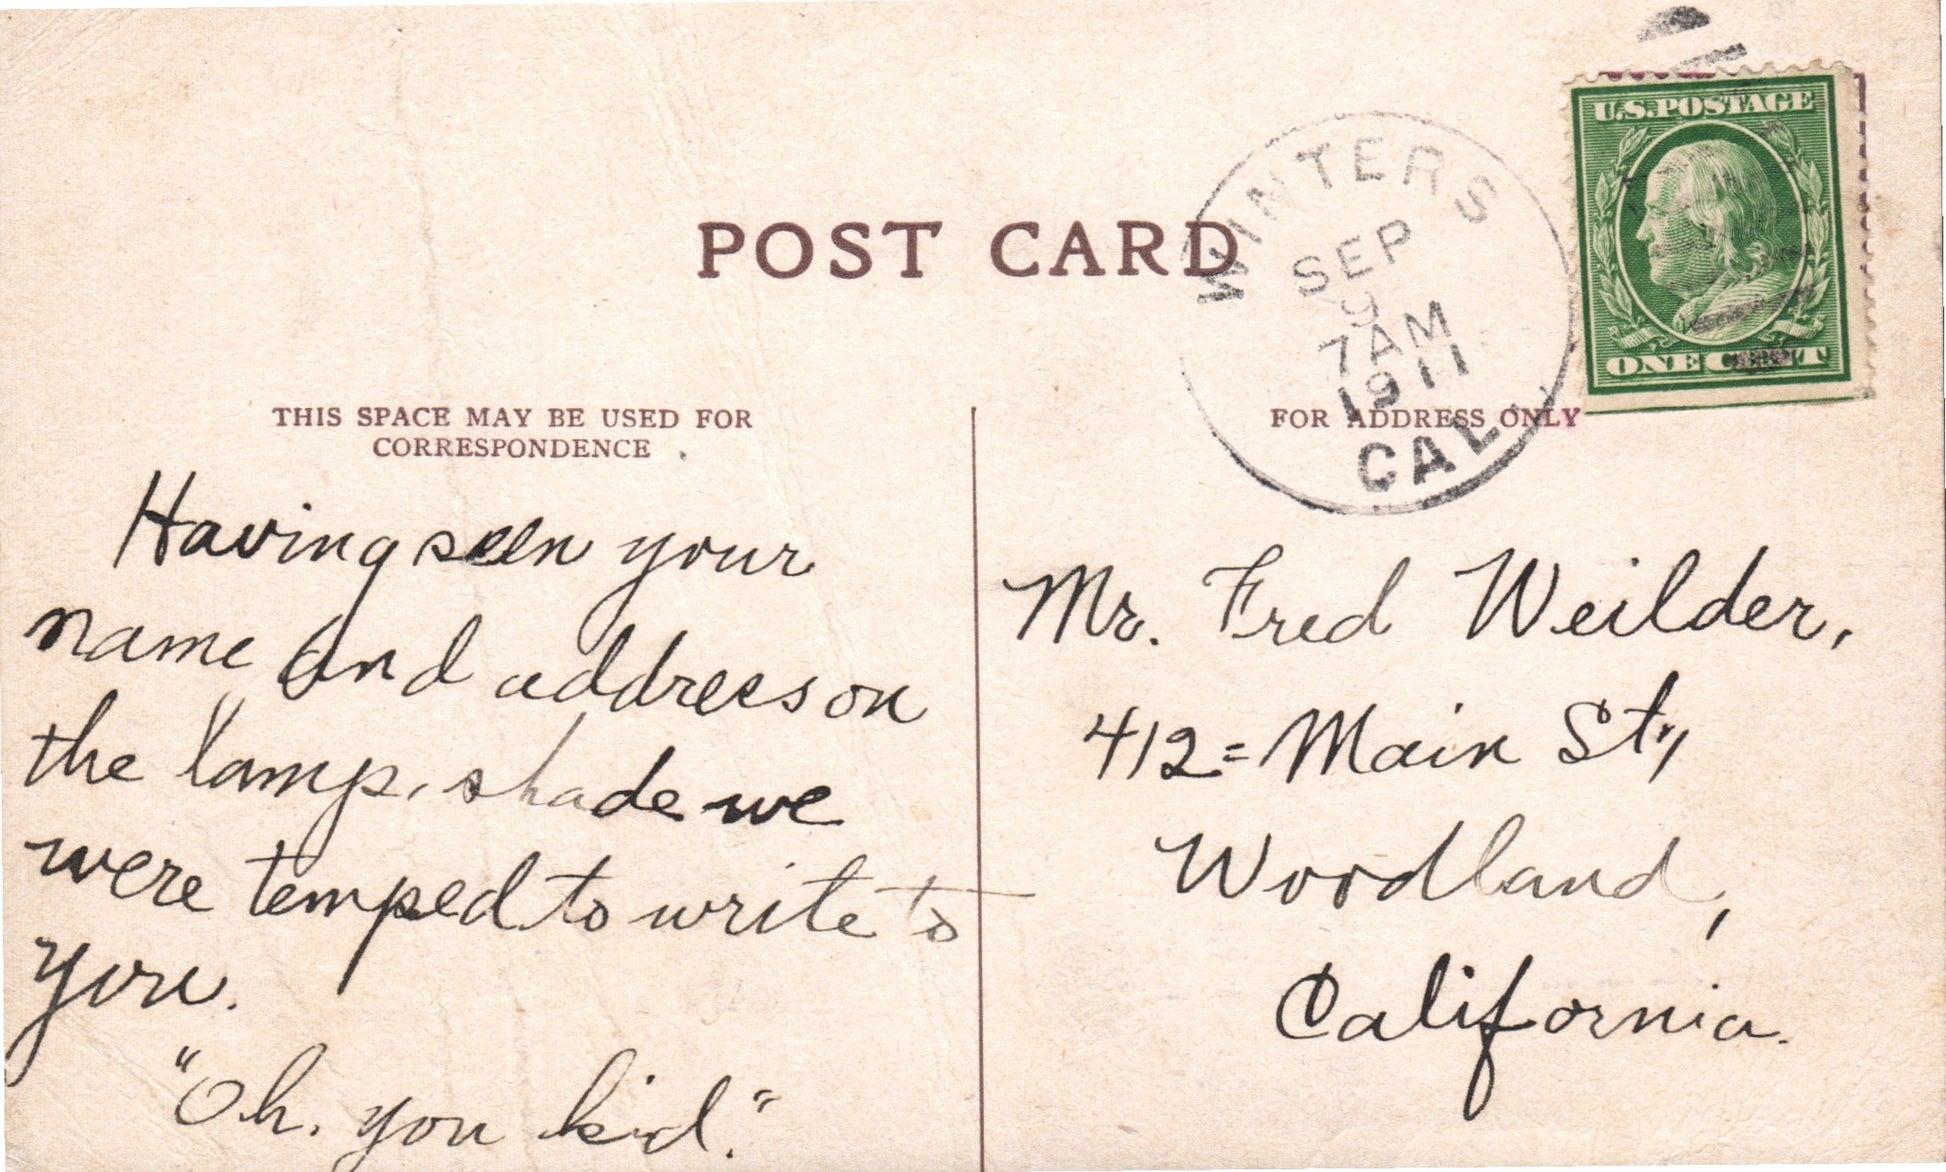 POST CARD
WINTERS
SEP
9
7AM
1911
CAL.
U.S. POSTAGE
ONE CENT
THIS SPACE MAY BE USED FOR
CORRESPONDENCE
FOR ADDRESS ONLY
Having seen your
name and address on
the lamp, shade we
were temped to write to
you.
"Oh. you kid."
Mr. Fred Weilder,
412 = Main St.,
Woodland,
California.